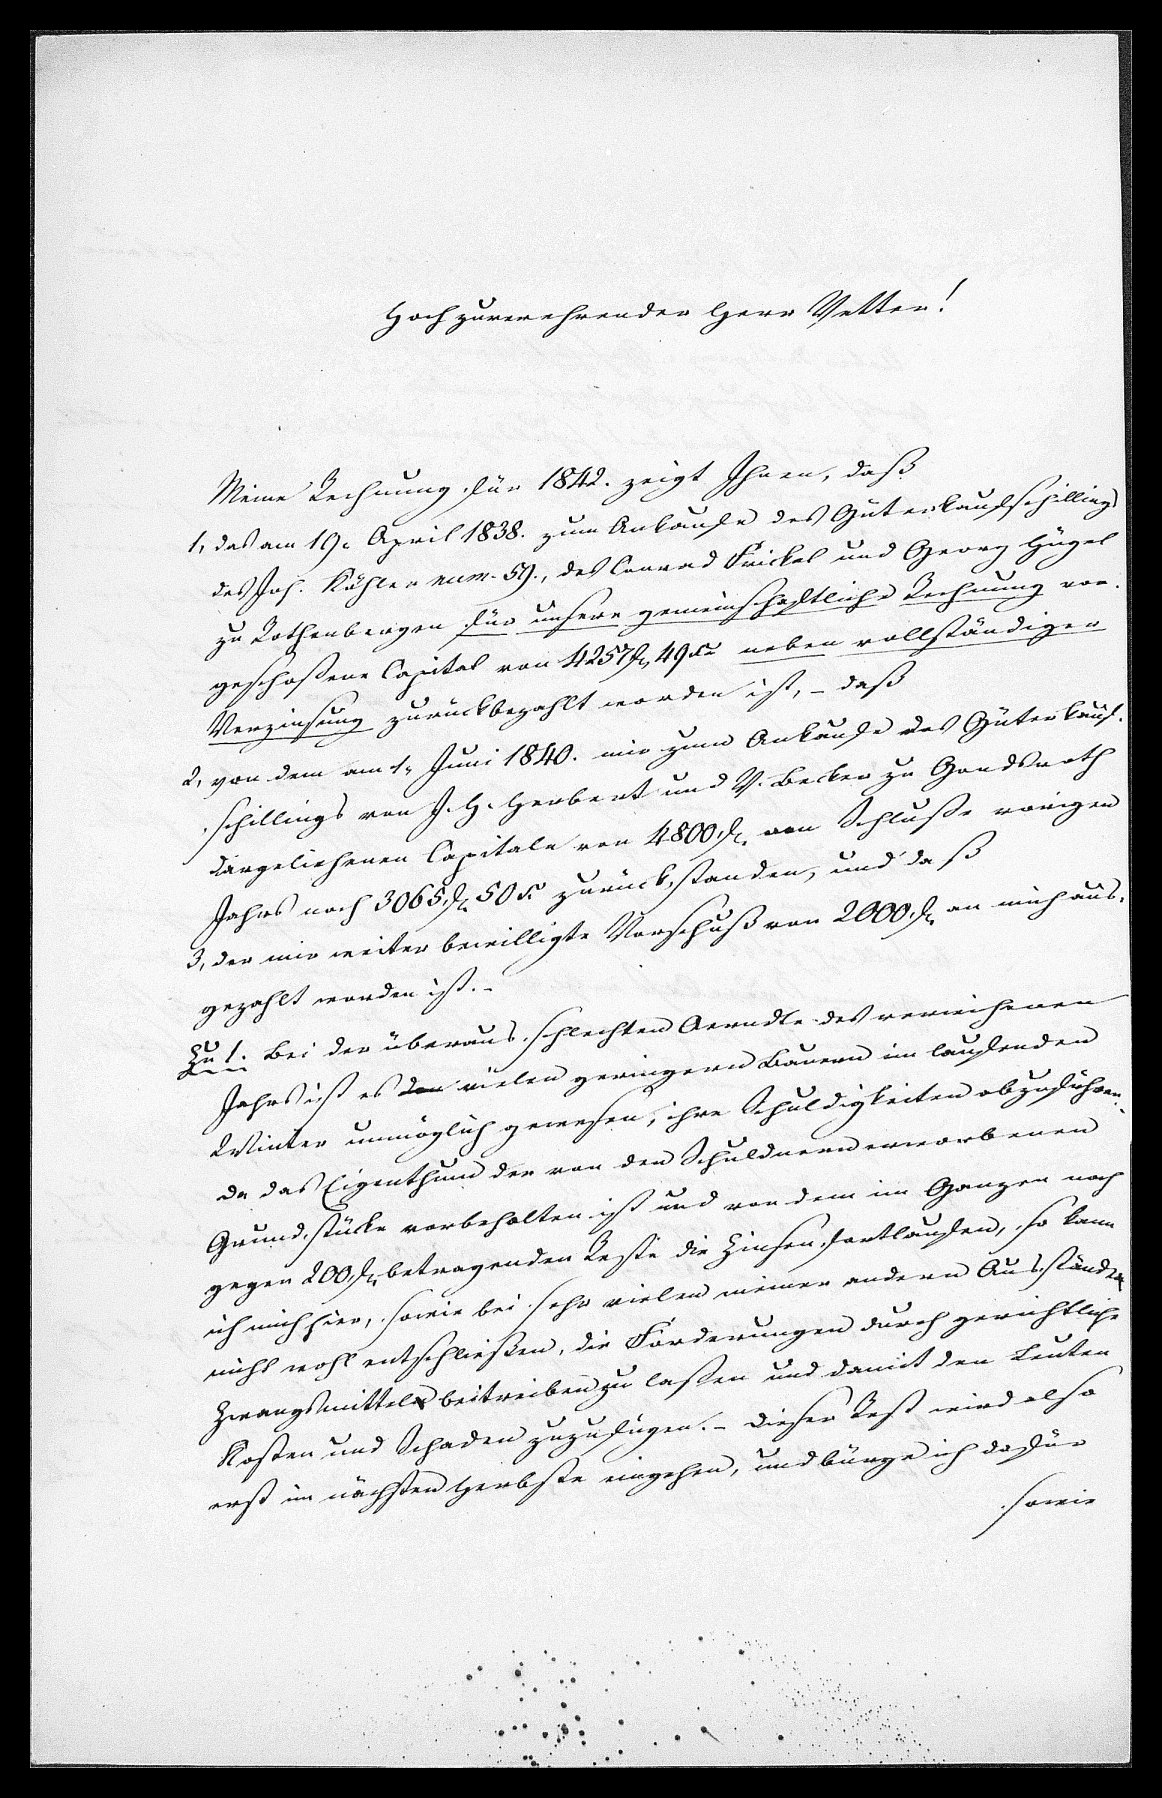 Hochzuverehrender Herr Vetter!
Meine Rechnung für 1842. zeigt Ihnen, daß
1, das am 19. April 1838. zum Ankaufe des Güterkaufschillings
des Joh. Köhler num. 59., des Conrad Frickel und Georg Hügel
zu Rothenbergen für unsere gemeinschaftliche Rechnung vor-
geschoßene Capital von 4257 fl, 49 Xr neben vollständiger
Verzinsung zurückbezahlt worden ist, – daß
2, von dem am 1. Juni 1840. mir zum Ankaufe des Güterkauf-
schillings von J. H. Herbert und V. Becker zu Gondsroth
dargeliehenen Capitale von 4800 fl. am Schluße vorigen
Jahrs noch 3065 fl. 50 Xr zurückstanden, und daß
3, der mir weiter bewilligte Vorschuß von 2000 fl. an mich aus-
gezahlt worden ist. –
Zu 1. Bei der überaus schlechten Aerndte des verwichenen
Jahrs ist es den vielen geringern Bauern im laufenden
Winter unmöglich gewesen, ihre Schuldigkeiten abzuführen.
Da das Eigenthum der von den Schuldnern erworbenen
Grundstücke vorbehalten ist und von dem im Ganzen noch
gegen 200 fl. betragenden Reste die Zinsen fortlaufen, so kann
ich mich hier, sowie bei sehr vielen meiner andern Ausstände
nicht wohl entschließen, die Forderungen durch gerichtliche
Zwangsmittel beitreiben zu laßen und damit den Leuten
Kosten und Schaden zuzufügen. – Dieser Rest wird also
erst im nächsten Herbste eingehen, und bürge ich dafür
sowie